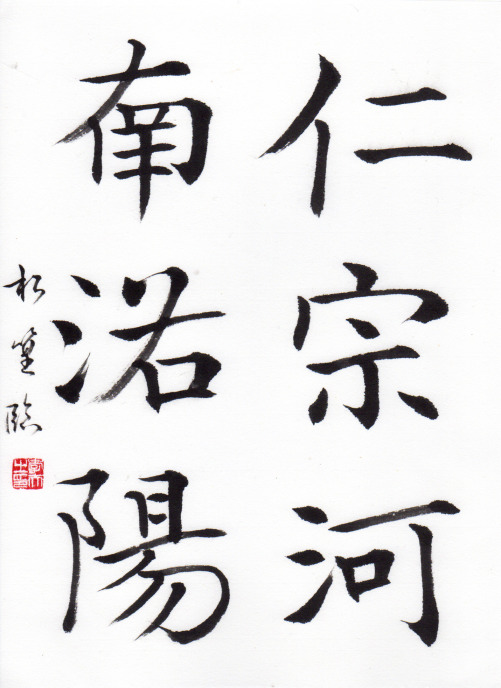 仁宗河
南洛陽
松篁臨